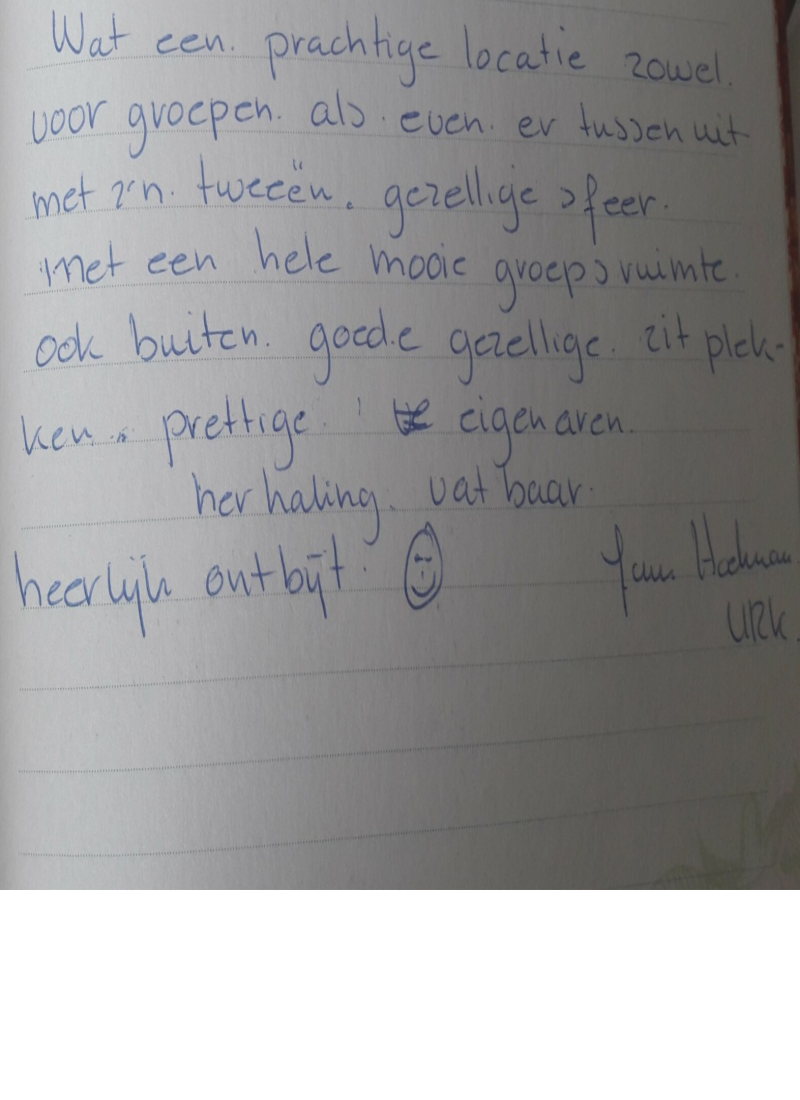 Wat een. prachtige locatie zowel.
voor groepen. als. even. er tussen uit
met z'n. tweeën. gezellige sfeer.
met een hele mooie groepsruimte.
ook buiten. goede gezellige. zit plek-
ken. prettige. eigenaren.
herhaling. vatbaar.
heerlijk ontbijt.
URK.